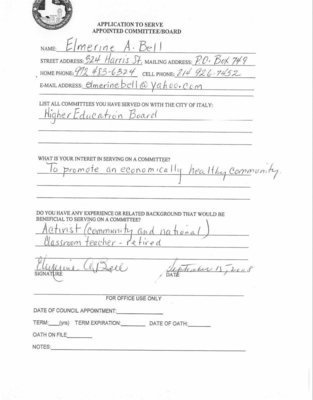 APPLICATION TO SERVE
APPOINTED COMMITTEE/BOARD
NAME: Elmerine A. Bell
STREET ADDRESS: 924 Harris St. MAILING ADDRESS: P.O. Box 749
HOME PHONE: 972 483-6324 CELL PHONE: 214 926-7452
E-MAIL ADDRESS: elmerinebell@yahoo.com
LIST ALL COMMITTEES YOU HAVE SERVED ON WITH THE CITY OF ITALY:
Higher Education Board
WHAT IS YOUR INTEREST IN SERVING ON A COMMITTEE?
To promote an economically healthy community.
DO YOU HAVE ANY EXPERIENCE OR RELATED BACKGROUND THAT WOULD BE
BENEFICIAL TO SERVING ON A COMMITTEE?
Activist (community and national)
Classroom teacher - retired
Elmerine A. Bell September
SIGNATURE DATE
FOR OFFICE USE ONLY
DATE OF COUNCIL APPOINTMENT:
TERM: (yrs) TERM EXPIRATION: DATE OF OATH:
OATH ON FILE
NOTES: